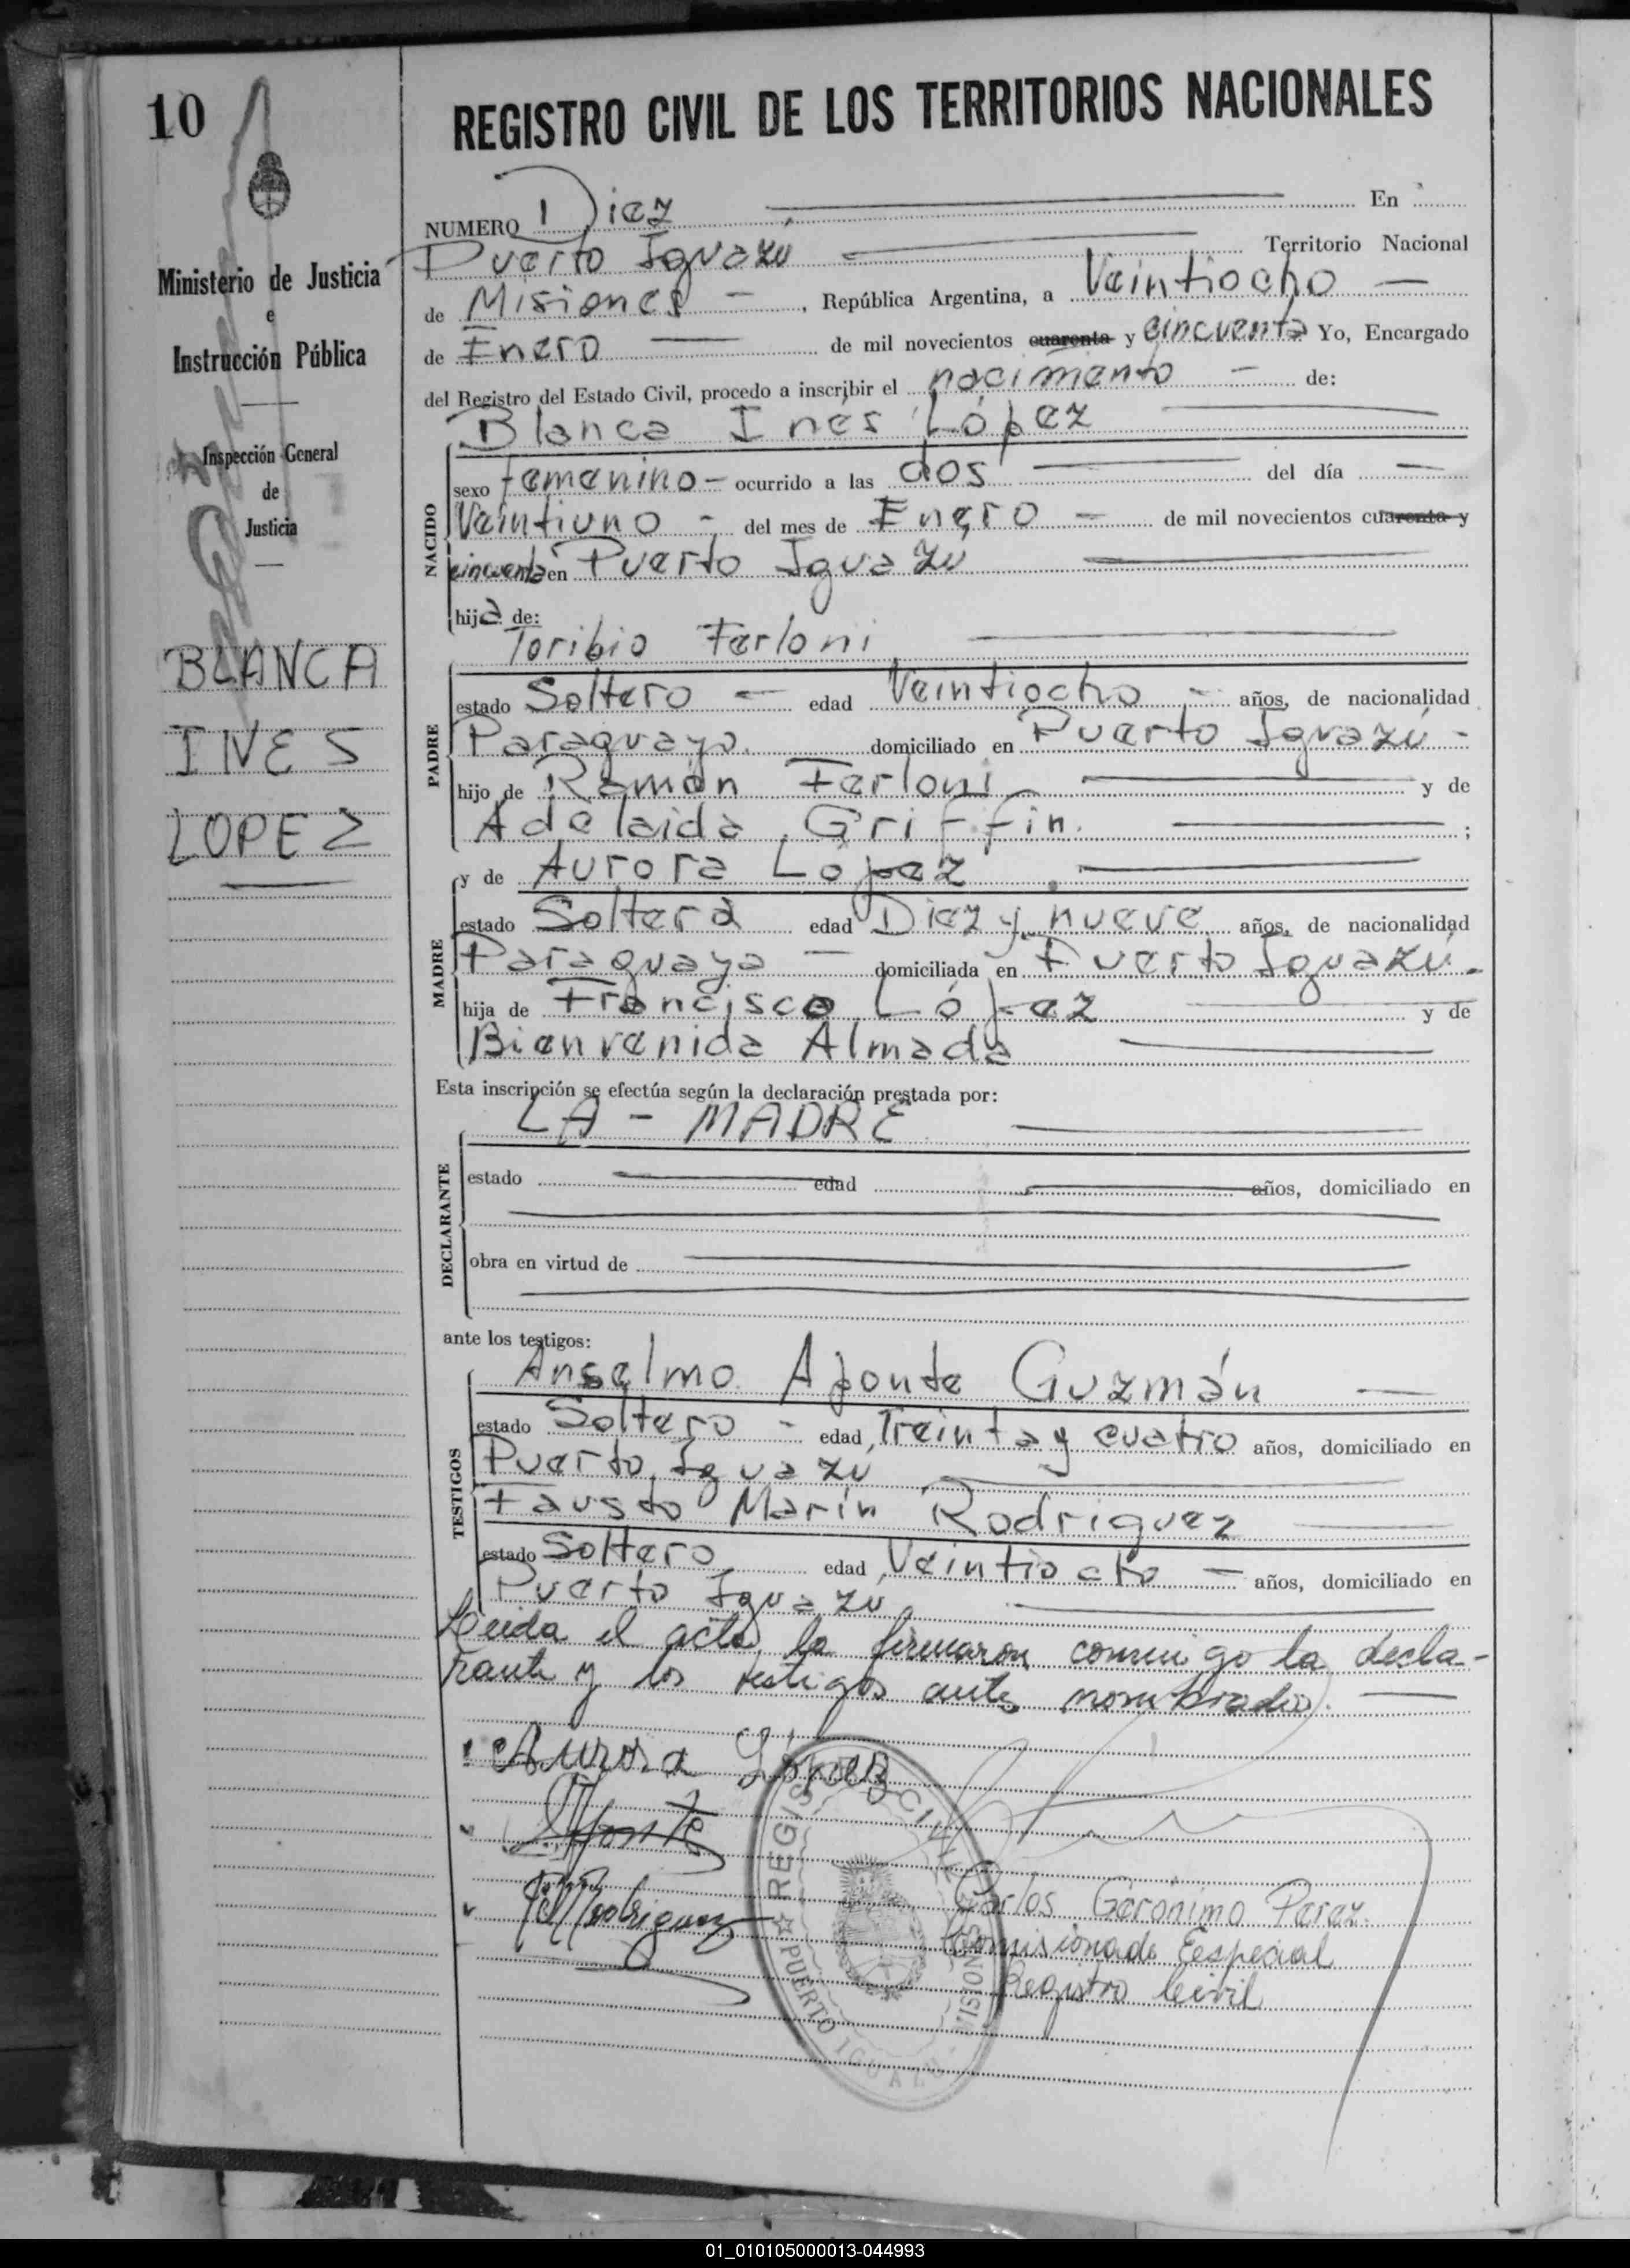 10
REGISTRO CIVIL DE LOS TERRITORIOS NACIONALES
Ministerio de Justicia
e
Instrucción Pública
Inspección General
de
Justicia
BLANCA
INES
LOPEZ
NUMERO Diez En
Puerto Iguazú Territorio Nacional
de Misiones - , República Argentina, a Veintiocho -
de Enero de mil novecientos cuarenta y cincuenta Yo, Encargado
del Registro del Estado Civil, procedo a inscribir el nacimiento - de:
Blanca Inés López
NACIDO
sexo femenino - ocurrido a las dos del día -
Veintiuno - del mes de Enero - de mil novecientos cuarenta y
cincuenta en Puerto Iguazú
hija de:
Toribio Ferloni
PADRE
estado Soltero - edad Veintiocho - años, de nacionalidad
Paraguayo. domiciliado en Puerto Iguazú -
hijo de Ramón Ferloni y de
Adelaida Griffin. ;
y de Aurora López
MADRE
estado Soltera edad Diez y nueve años, de nacionalidad
Paraguaya - domiciliada en Puerto Iguazú.
hija de Francisco López y de
Bienvenida Almada
Esta inscripción se efectúa según la declaración prestada por:
LA - MADRE
DECLARANTE
estado edad años, domiciliado en
obra en virtud de
ante los testigos:
TESTIGOS
Anselmo Aponte Guzmán -
estado Soltero - edad Treinta y cuatro años, domiciliado en
Puerto Iguazú
Fausto Marín Rodriguez
estado Soltero edad Veintiocho - años, domiciliado en
Puerto Iguazú
Leida el acta, la firmaron conmigo la decla-
rante y los testigos antes nombrados.
Aurora López
Aponte
Rodriguez
REGISTRO CIVIL
PUERTO IGUAZU - MISIONES
Carlos Gerónimo Perez.
Comisionado Eespecial
Registro Civil
01_010105000013-044993